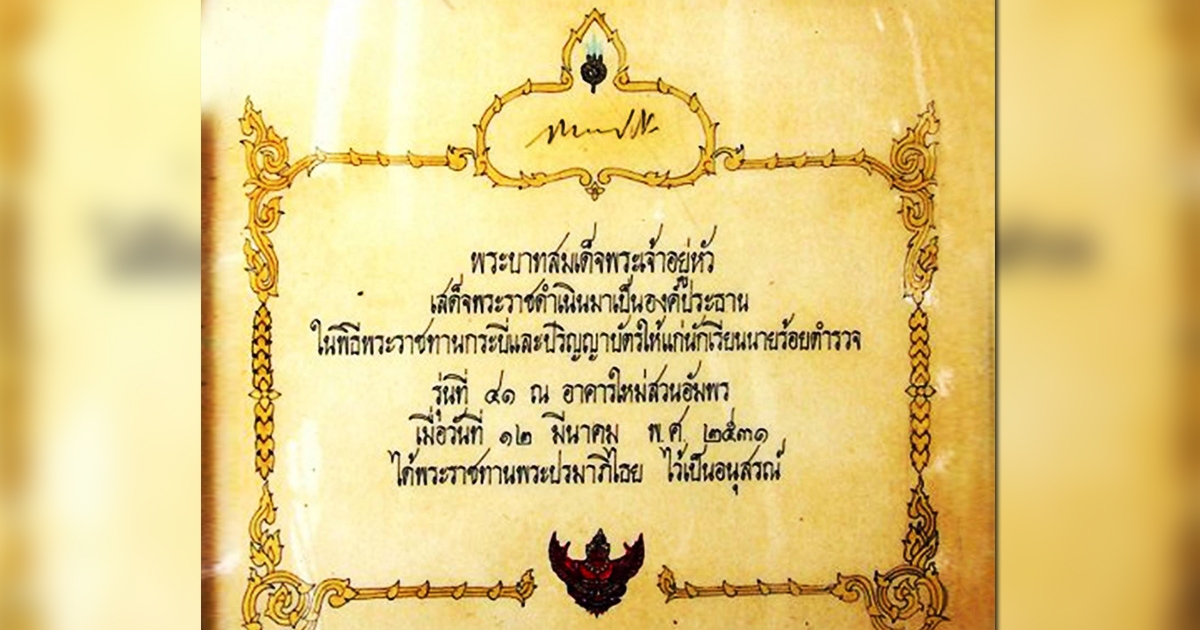 พระบาทสมเด็จพระเจ้าอยู่หัว
เสด็จพระราชดำเนินมาเป็นองค์ประธาน
ในพิธีพระราชทานกระบี่และปริญญาบัตรให้แก่นักเรียนนายร้อยตำรวจ
รุ่นที่ ๔๑ ณ อาคารใหม่สวนอัมพร
เมื่อวันที่ ๑๒ มีนาคม พ.ศ. ๒๕๓๑
ได้พระราชทานพระปรมาภิไธย ไว้เป็นอนุสรณ์